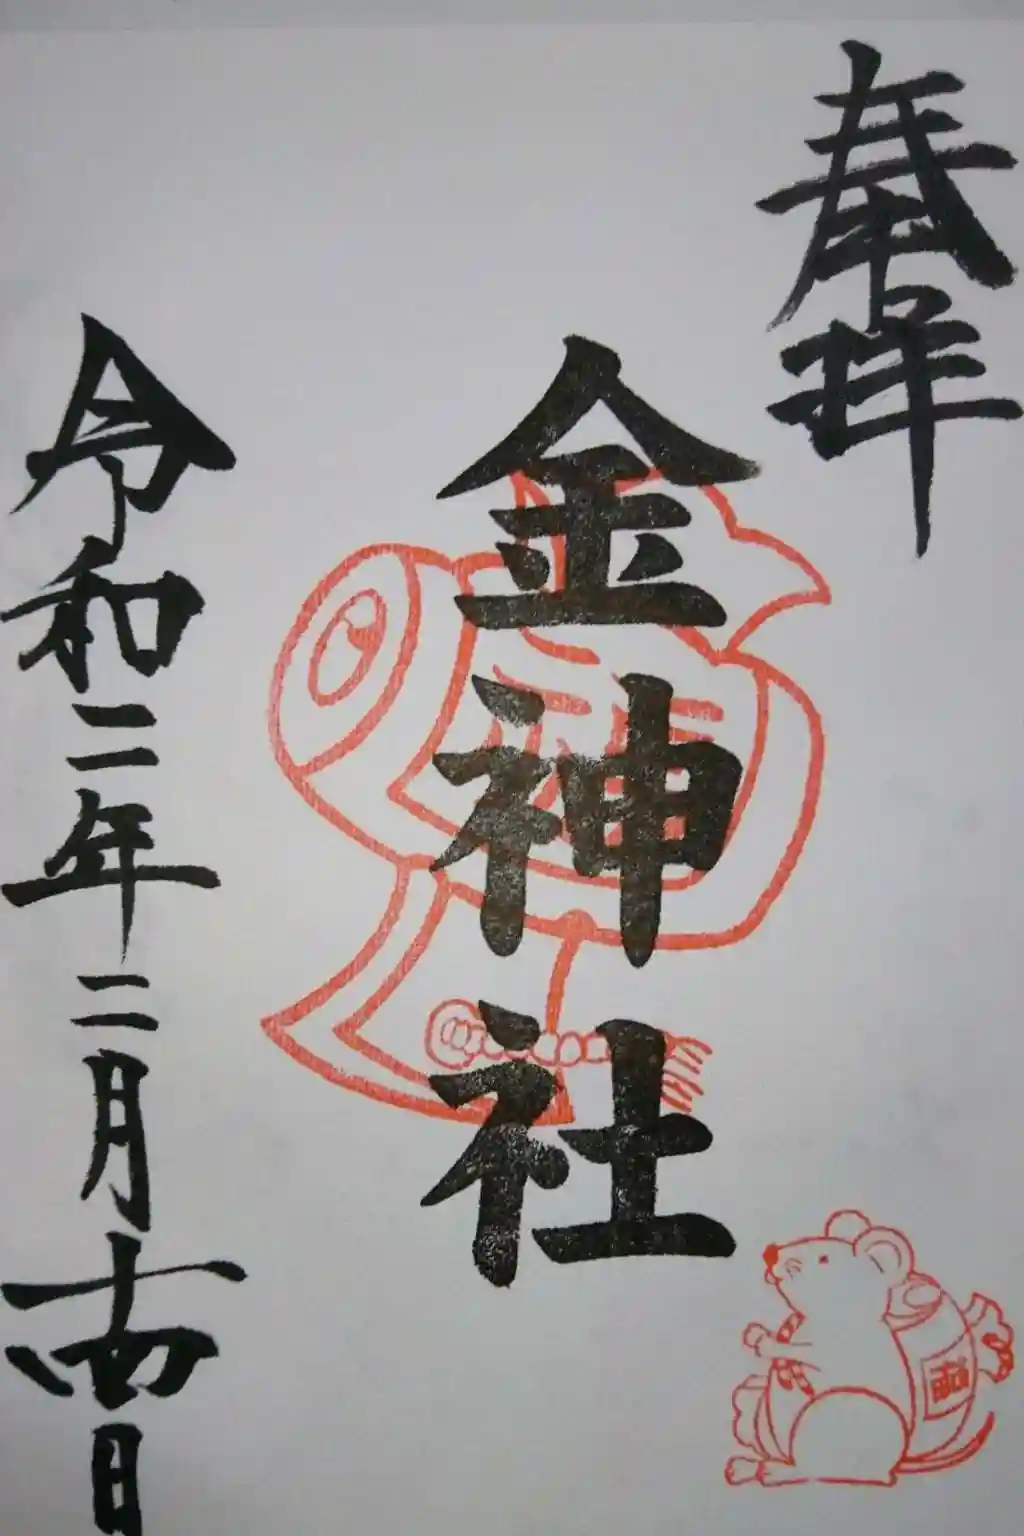 奉拝
金神社
令和二年二月十四日
福